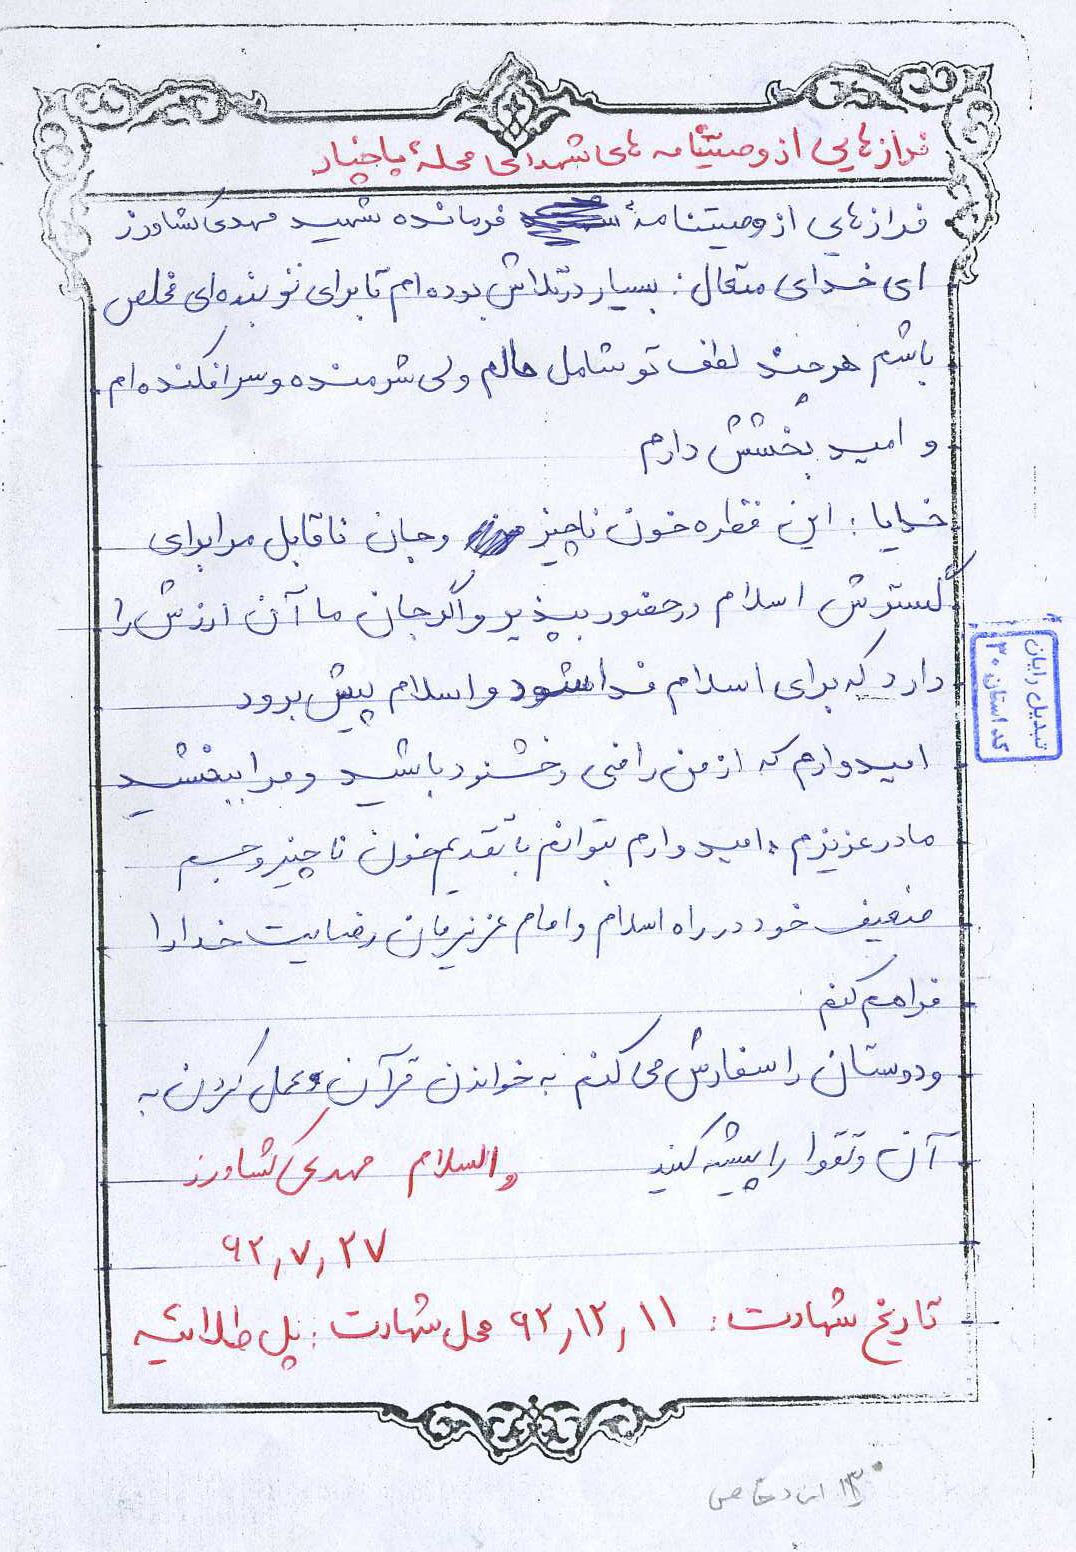 فرازهایی از وصیتنامه های شهدای محلۀ پاچنار
فرازهایی از وصیتنامۀ فرمانده شهید مهدی کشاورز
ای خدای متعال: بسیار در تلاش بوده ام تا برای تو بنده ای مخلص
باشم هر چند لطف تو شامل حالم ولی شرمنده و سرافکنده ام
و امید بخشش دارم
خدایا: این قطره خون ناچیز و جان ناقابل مرا برای
گسترش اسلام در حضور بپذیر و اگر جان ما آن ارزش را
دارد که برای اسلام فدا شود و اسلام پیش برود
امیدوارم که از من راضی و خشنود باشید و مرا ببخشید
مادر عزیزم، امیدوارم بتوانم با تقدیم خون ناچیز و جسم
ضعیف خود در راه اسلام و امام عزیزمان رضایت خدا را
فراهم کنم
و دوستان را سفارش می کنم به خواندن قرآن و عمل کردن به
آن و تقوا را پیشه کنید والسلام مهدی کشاورز
۶۲,۷,۲۷
تاریخ شهادت: ۶۲,۱۲,۱۱ محل شهادت: پل طلائیه
تبدیل رایان
کد استان ۳۰